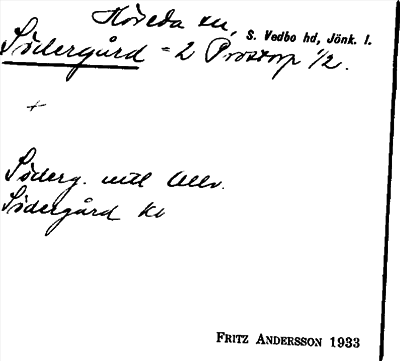 Höreda sn, S. Vedbo hd, Jönk. l.
Södergård = 2 Prostorp 1/2.
+
Söderg. uttl Allv.
Södergård Kv
FRITZ ANDERSSON 1933